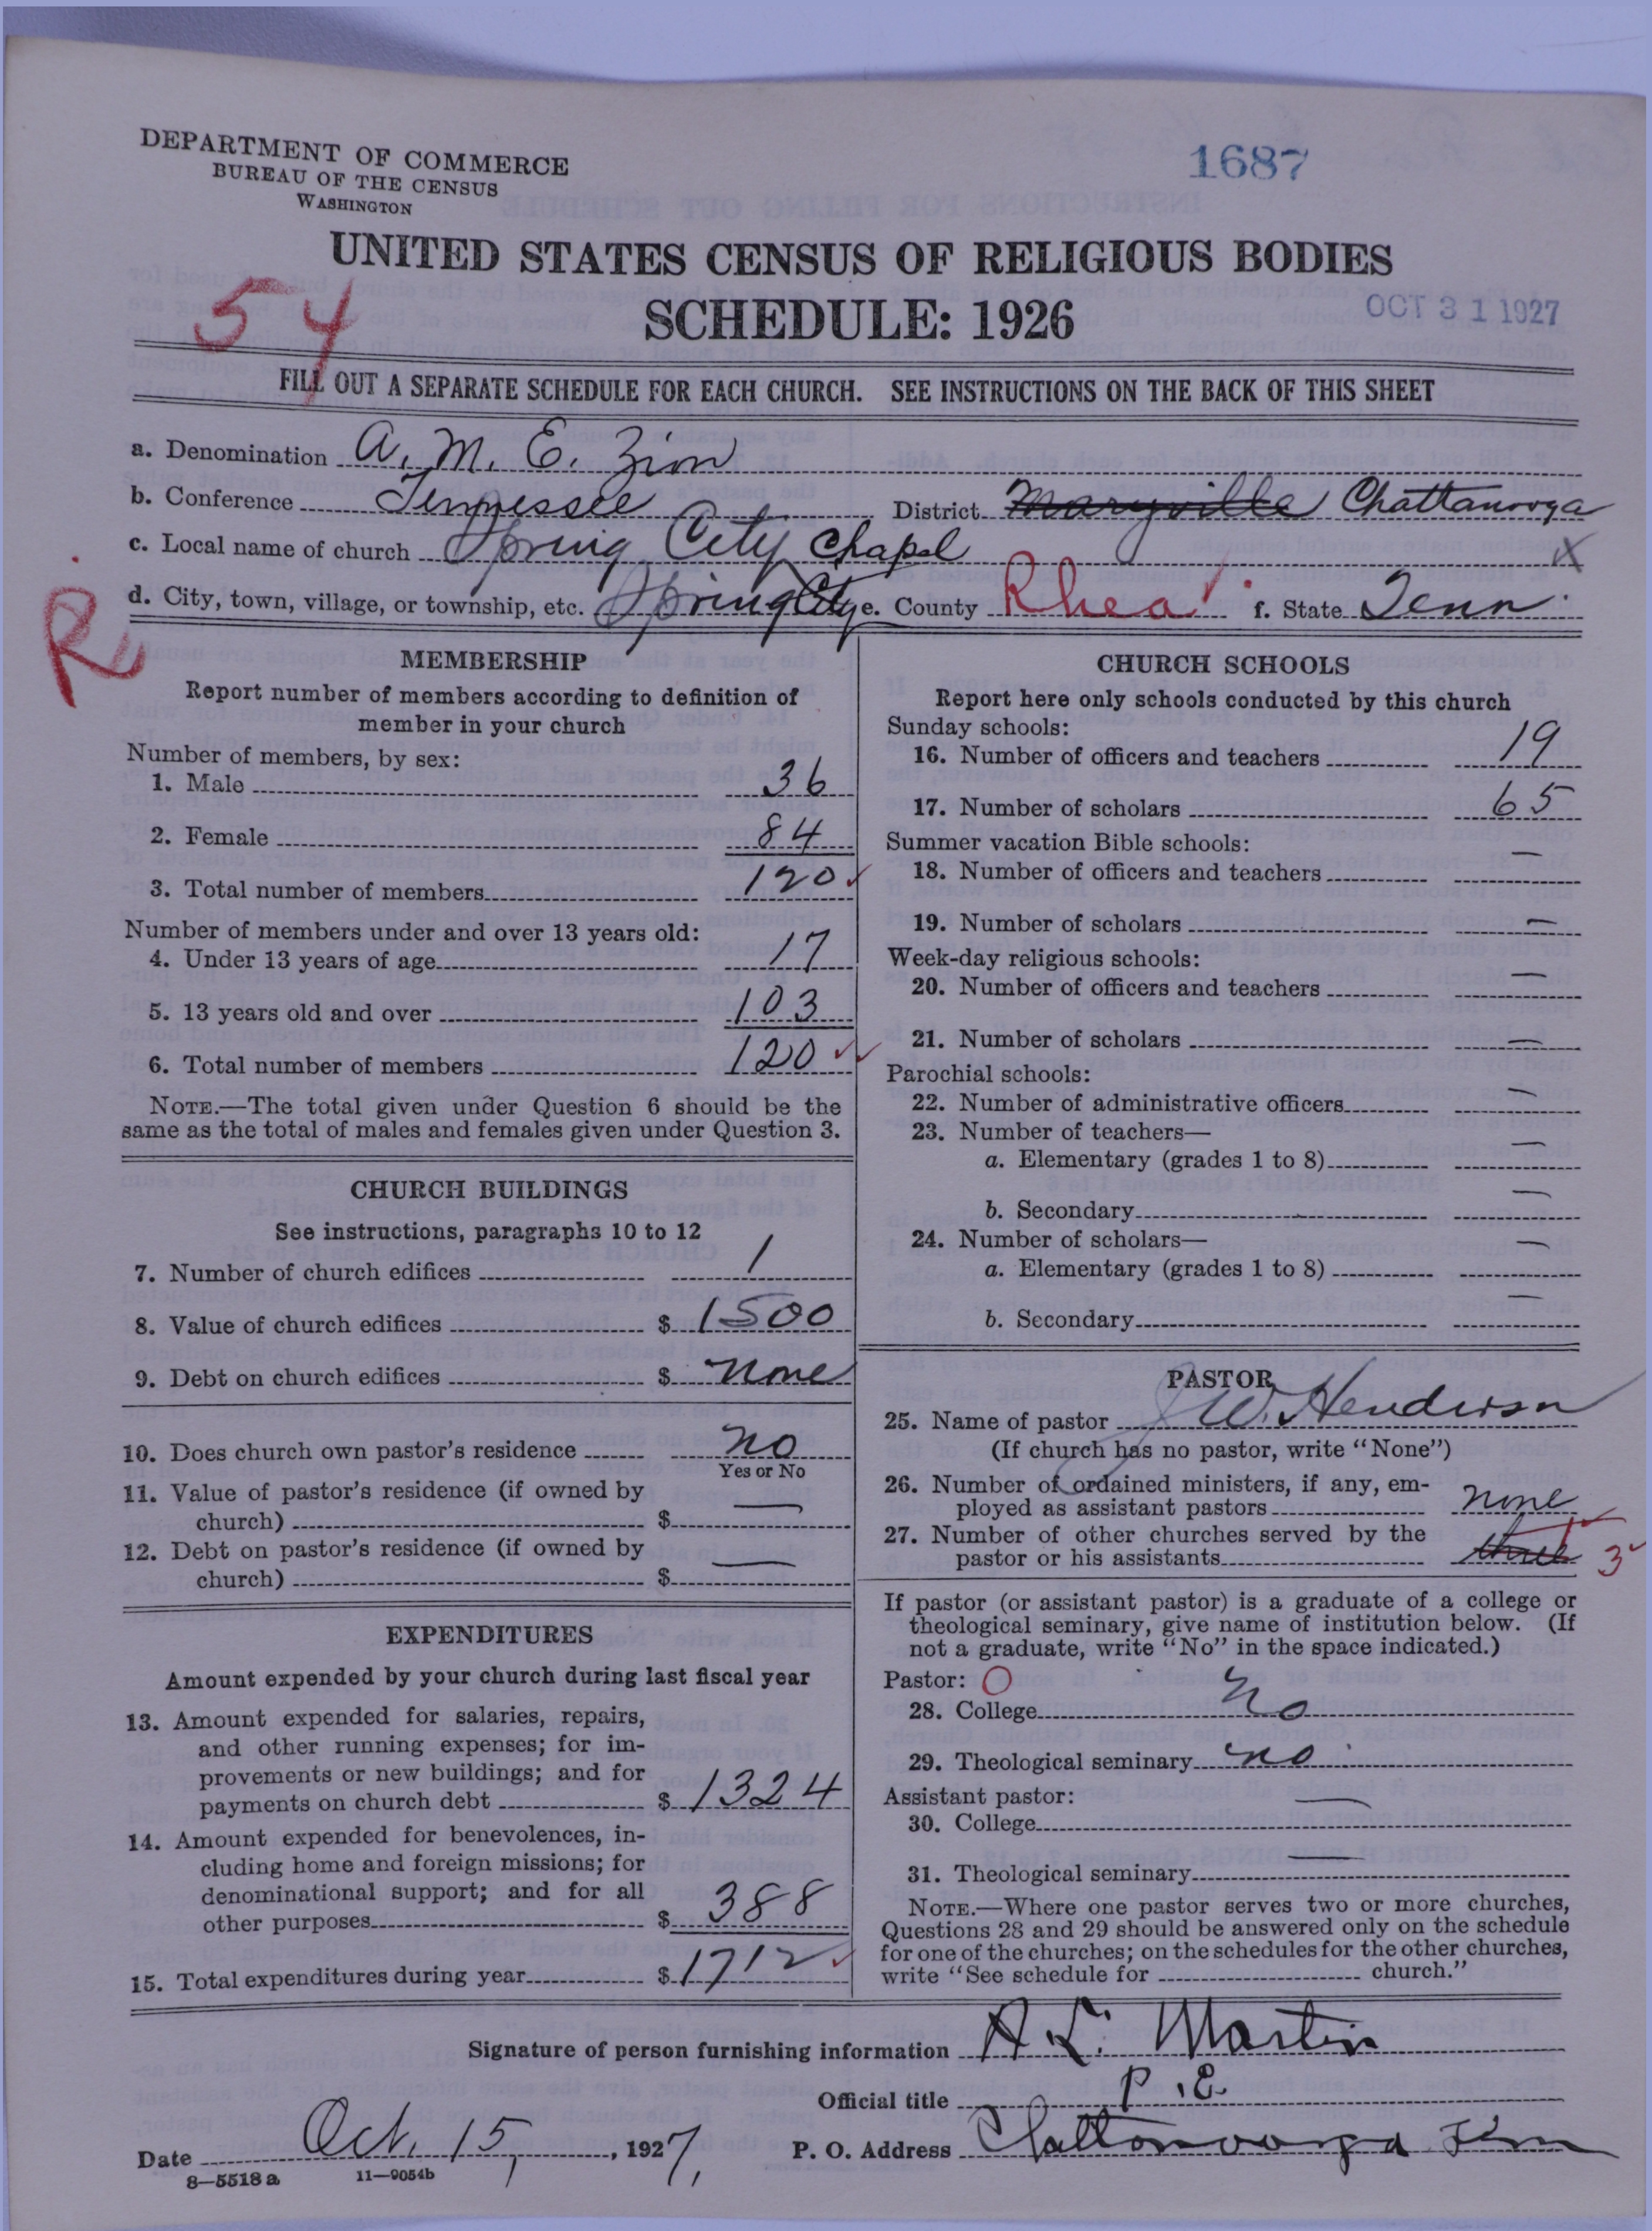 DEPARTMENT OF COMMERCE
BUREAU OF THE CENSUS
WASHINGTON
1687
UNITED STATES CENSUS OF RELIGIOUS BODIES
54
SCHEDULE: 1926
OCT 31 1927
FILL OUT A SEPARATE SCHEDULE FOR EACH CHURCH. SEE INSTRUCTIONS ON THE BACK OF THIS SHEET
a. Denomination A. M. E. Zion
b. Conference Tennessee District Maryville Chattanooga
c. Local name of church Spring City Chapel X
d. City, town, village, or township, etc. Spring City e. County Rhea f. State Tenn.
MEMBERSHIP
Report number of members according to definition of
member in your church
Number of members, by sex:
1. Male 36
2. Female 84
3. Total number of members 120
Number of members under and over 13 years old:
4. Under 13 years of age 17
5. 13 years old and over 103
6. Total number of members 120
NOTE.—The total given under Question 6 should be the
same as the total of males and females given under Question 3.
CHURCH BUILDINGS
See instructions, paragraphs 10 to 12
7. Number of church edifices 1
8. Value of church edifices $ 1500
9. Debt on church edifices $ none
10. Does church own pastor's residence no
Yes or No
11. Value of pastor's residence (if owned by
church) $ —
12. Debt on pastor's residence (if owned by
church) $ —
EXPENDITURES
Amount expended by your church during last fiscal year
13. Amount expended for salaries, repairs,
and other running expenses; for im-
provements or new buildings; and for
payments on church debt $ 1324
14. Amount expended for benevolences, in-
cluding home and foreign missions; for
denominational support; and for all
other purposes $ 388
15. Total expenditures during year $ 1712
CHURCH SCHOOLS
Report here only schools conducted by this church
Sunday schools:
16. Number of officers and teachers 19
17. Number of scholars 65
Summer vacation Bible schools:
18. Number of officers and teachers —
19. Number of scholars —
Week-day religious schools:
20. Number of officers and teachers —
21. Number of scholars —
Parochial schools:
22. Number of administrative officers —
23. Number of teachers—
a. Elementary (grades 1 to 8) —
b. Secondary —
24. Number of scholars—
a. Elementary (grades 1 to 8) —
b. Secondary —
PASTOR
25. Name of pastor J W. Henderson
(If church has no pastor, write "None")
26. Number of ordained ministers, if any, em-
ployed as assistant pastors none
27. Number of other churches served by the
pastor or his assistants three 3
If pastor (or assistant pastor) is a graduate of a college or
theological seminary, give name of institution below. (If
not a graduate, write "No" in the space indicated.)
Pastor: O
28. College No
29. Theological seminary no
Assistant pastor: —
30. College
31. Theological seminary
NOTE.—Where one pastor serves two or more churches,
Questions 28 and 29 should be answered only on the schedule
for one of the churches; on the schedules for the other churches,
write "See schedule for church."
Signature of person furnishing information A L. Martin
Official title P. E.
Date Oct. 15, 1927. P. O. Address Chattanooga Tenn
8—5518a 11—9054b